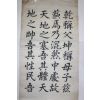 乾稱父坤稱母予玆
藐焉乃混然中處故
天地之塞吾其體天
地之帥吾其性民吾